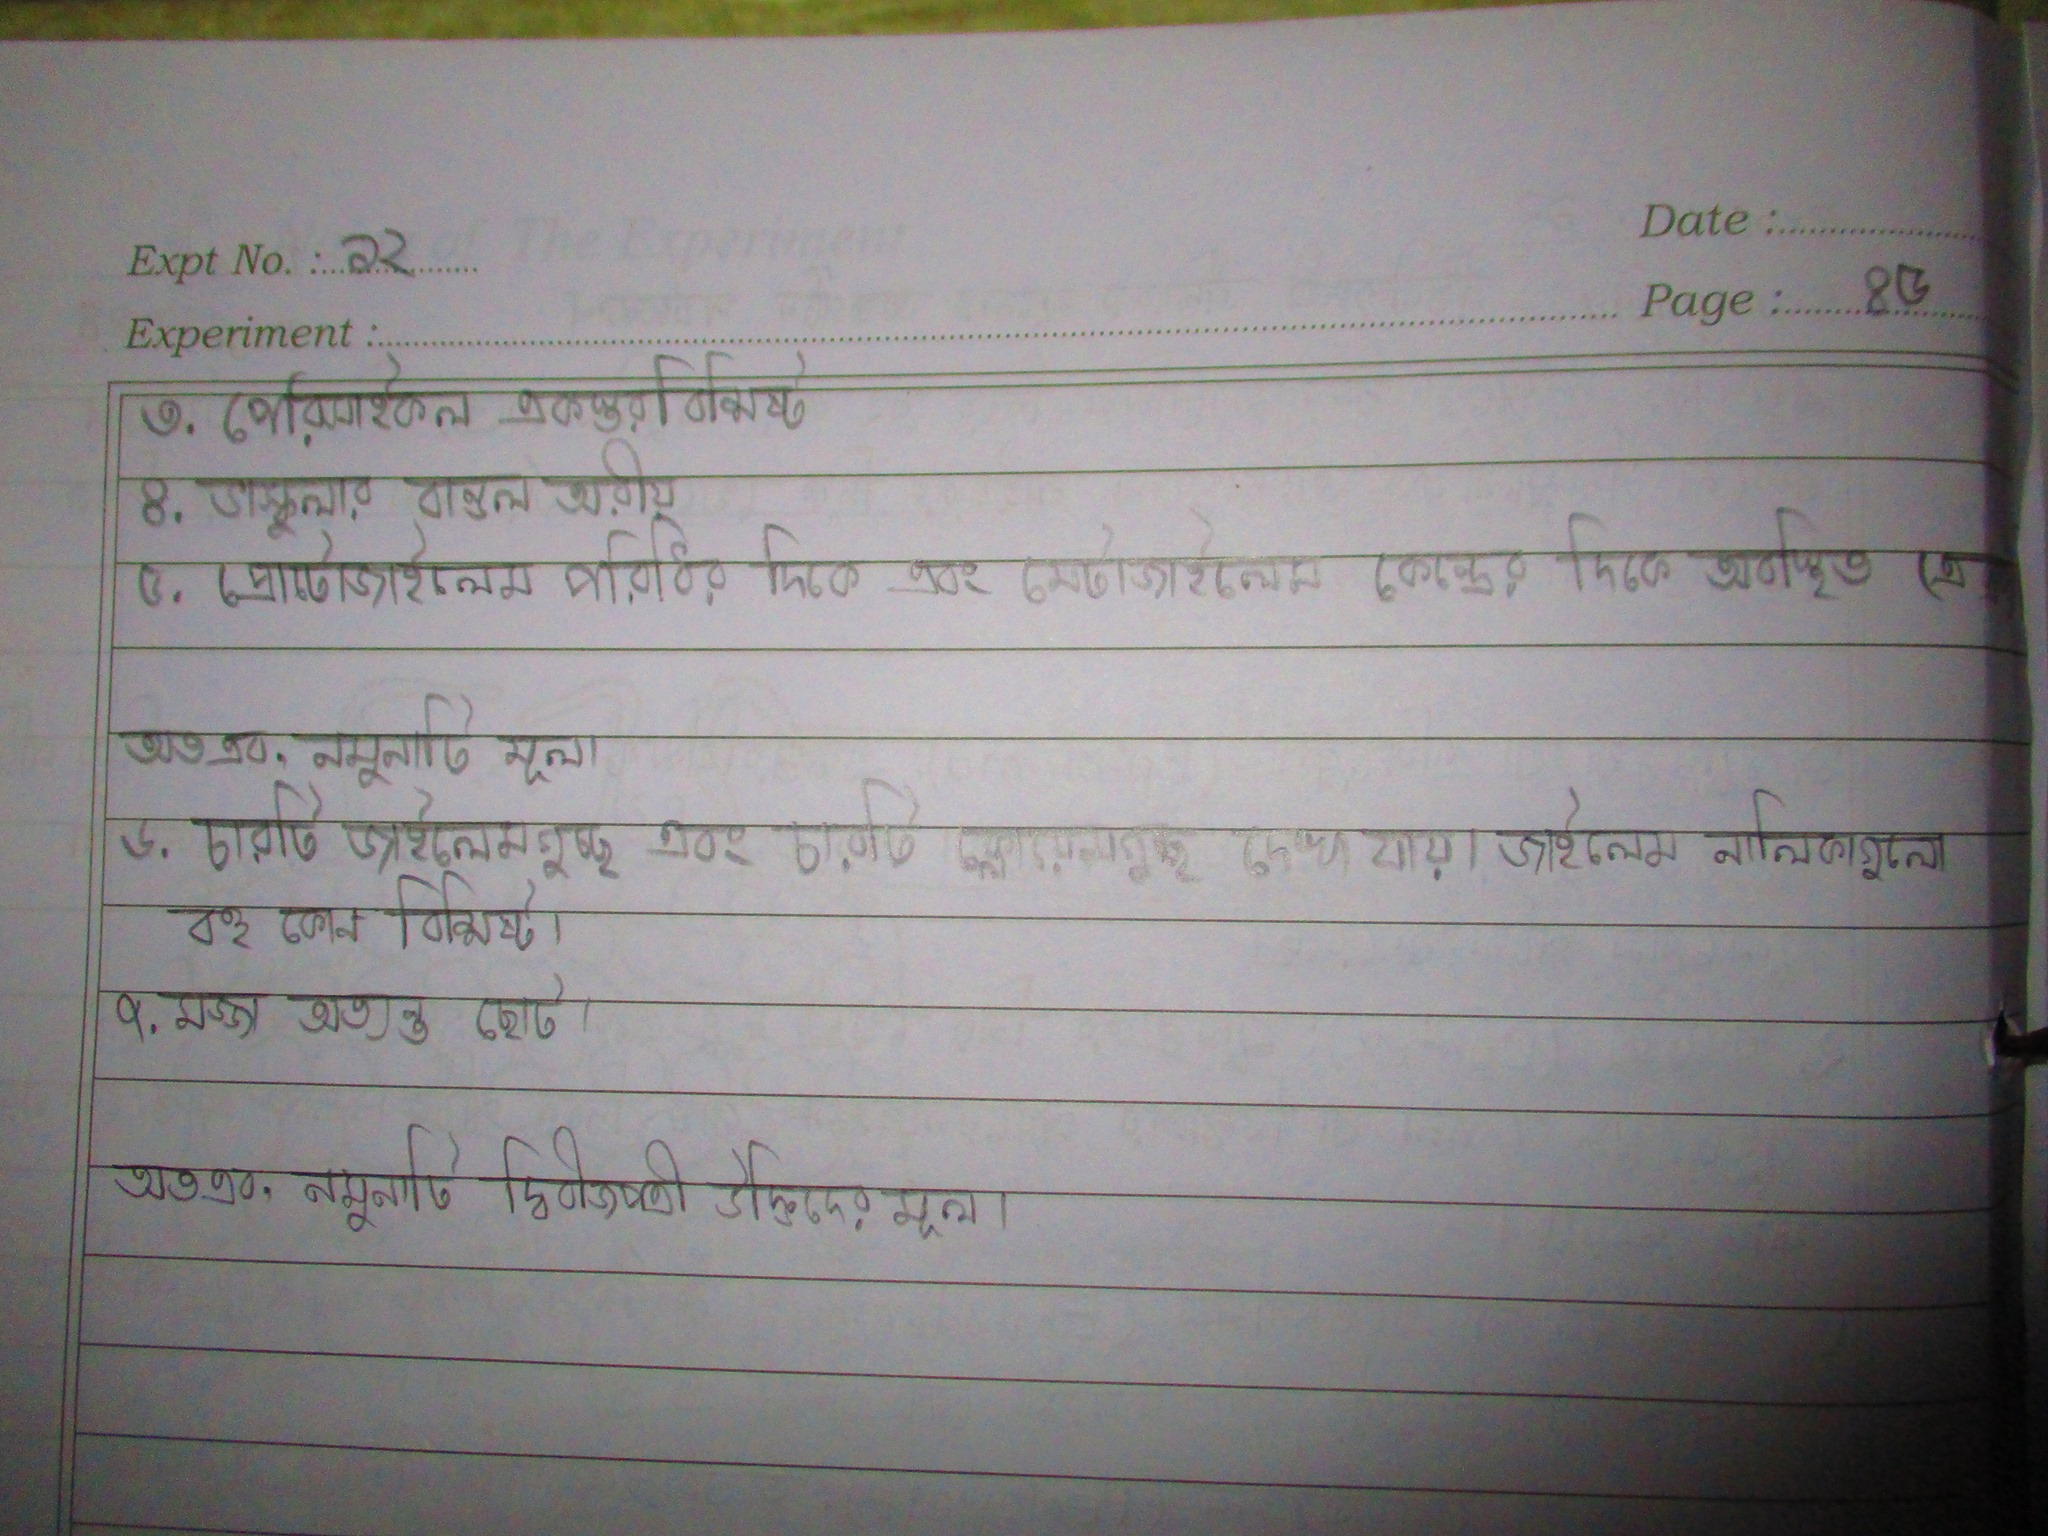 Date :
Expt No. : ১২
Page : ৪৫
Experiment :
৩. পেরিসাইকেল একস্তরবিশিষ্ট
৪. ভাস্কুলার বান্ডল অরীয়
৫. প্রোটোজাইলেম পরিধির দিকে এবং মেটাজাইলেম কেন্দ্রের দিকে অবস্থিত
অতএব, নমুনাটি মূল।
৬. চারটি জাইলেমগুচ্ছ এবং চারটি ফ্লোয়েমগুচ্ছ দেখা যায়। জাইলেম নালিকাগুলো
বহু কোন বিশিষ্ট।
৭. মজ্জা অত্যন্ত ছোট।
অতএব, নমুনাটি দ্বিবীজপত্রী উদ্ভিদের মূল।